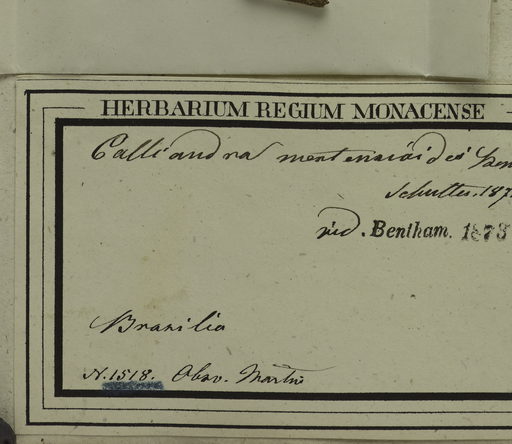 HERBARIUM REGIUM MONACENSE
Calliandra
Schultes. 187
vid. Bentham. 1873
Brasilia
N. 1518. Obsv. Martii